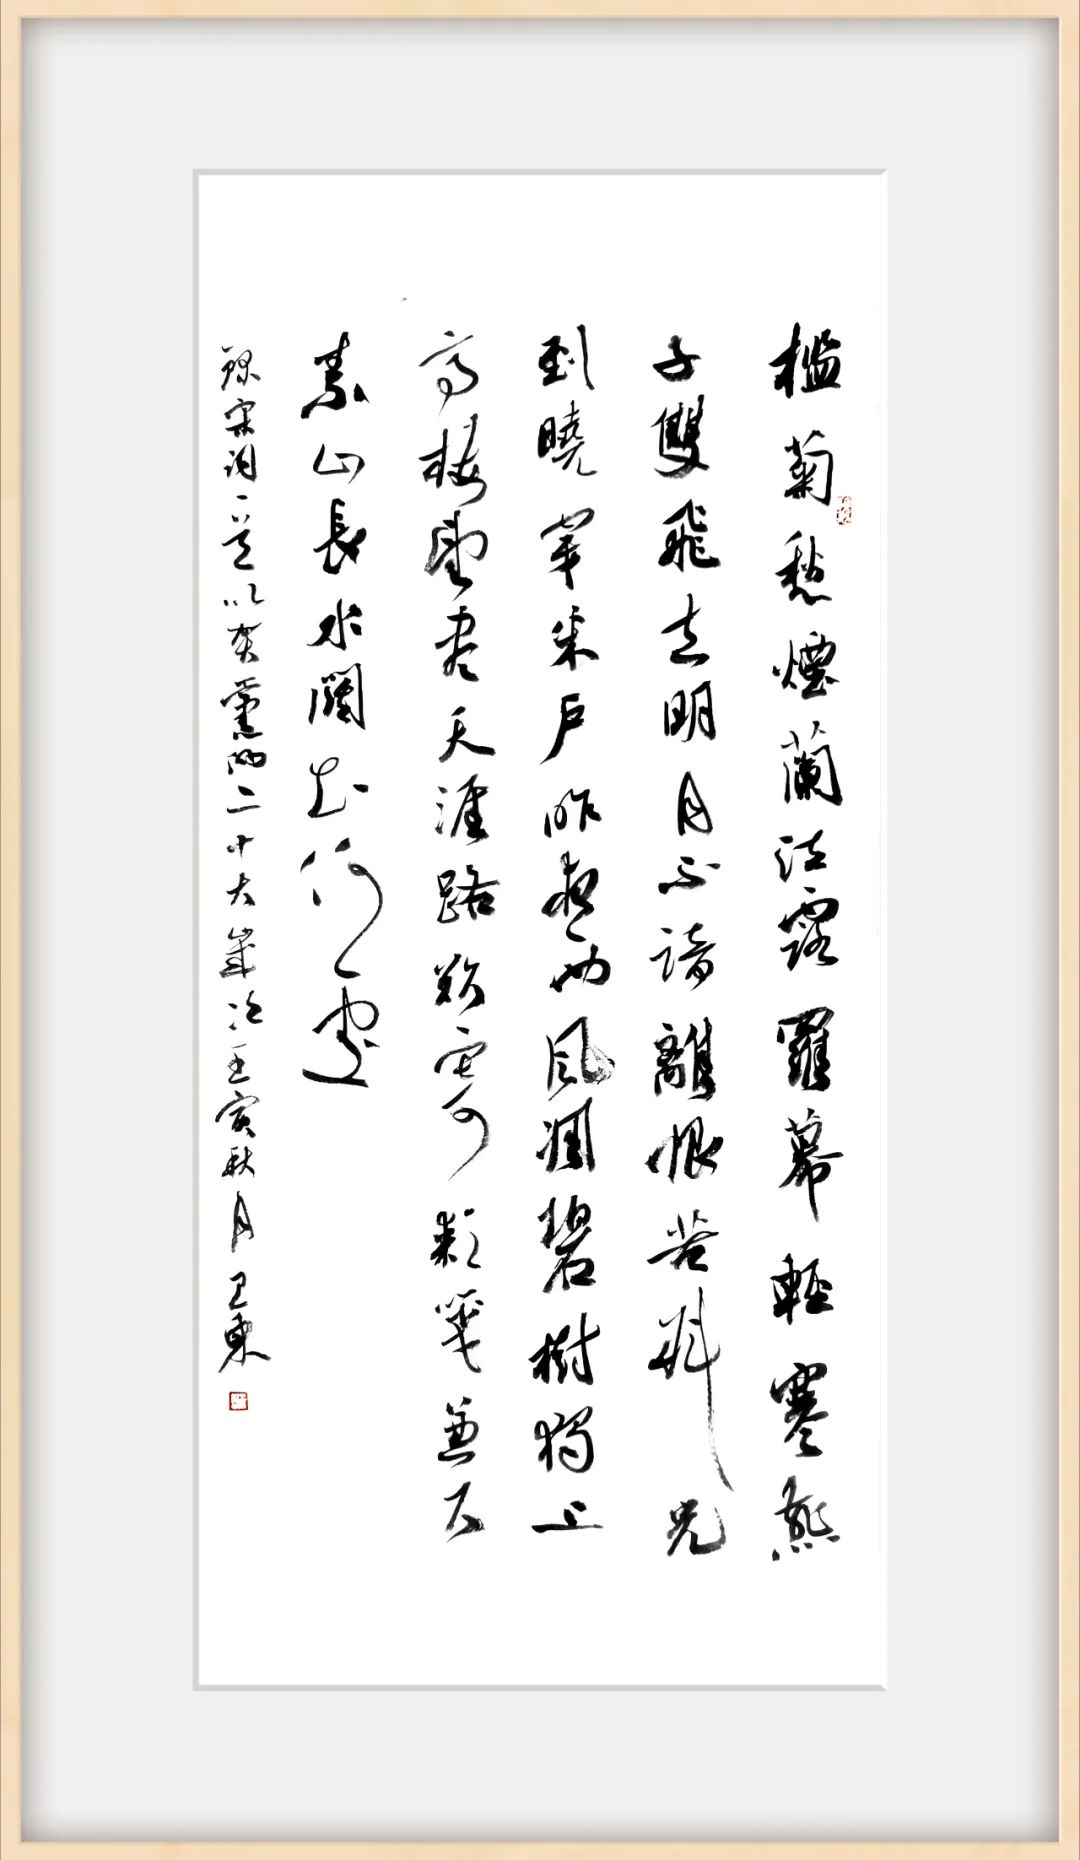 檻菊愁煙蘭泣露羅幕輕寒燕
子雙飛去明月不諳離恨苦斜光
到曉穿朱戶昨夜西風凋碧樹獨上
高樓望盡天涯路欲寄彩箋兼尺
素山長水闊知何處
錄宋詞一首以賀黨的二十大歲次壬寅秋月卫東